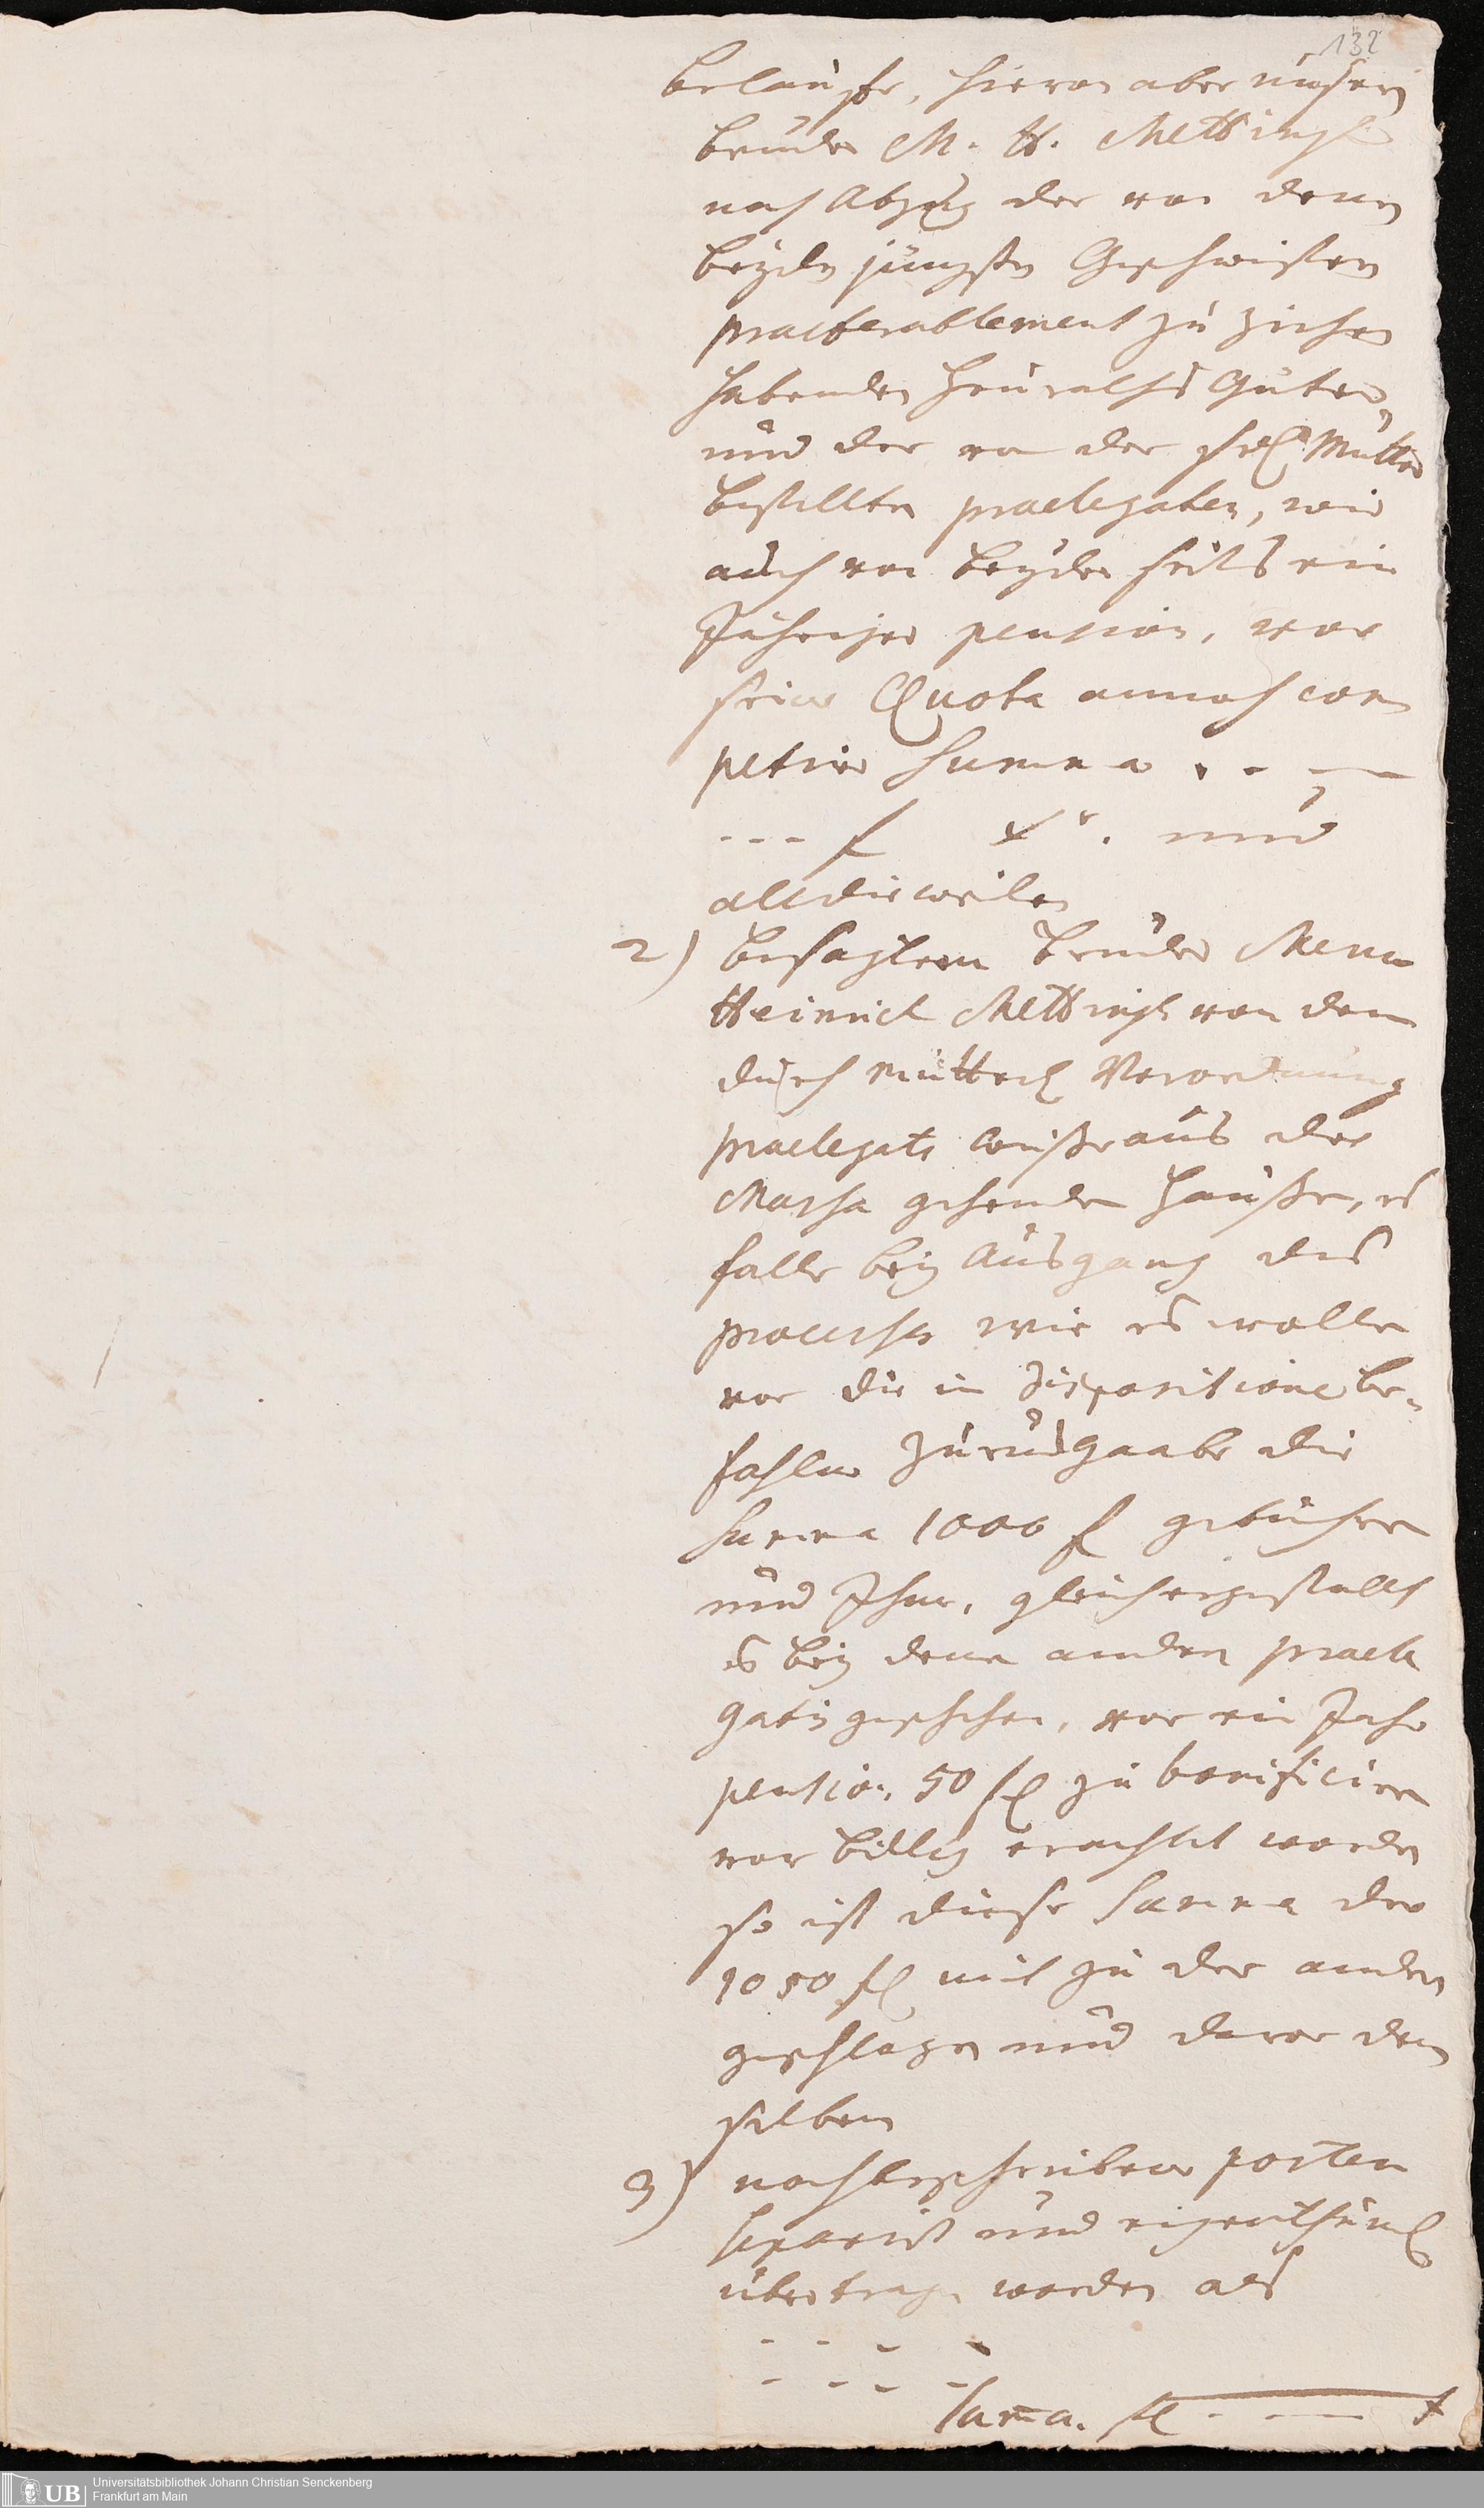 132
belauffe, hiervon aber unsern
bruder M. H. Mettingh
nach Abzug der von denen
beyden jüngsten Geschwistern
praeferablement zu ziehen
habenden Heuraths Güter,
und der von der seel. Mutter
bestellten praelegaten, wie
auch von beyder seits ein
Jähriger pension, vor
seine Quota annoch com
petire Summa . . —
--- f xr. und
alldieweilen
2) besagtem bruder Meno
Heinrich Mettingh von dem
durch mütterl. Verordnung
praelegats weiße aus der
Massa gehenden Hauße, es
falle bey Ausgang des
processes wie es wolle
vor die in dispositione be-
fohlene Zuruckgaabe die
Summa 1000 f gebühren
und Ihme, gleichergestalt
es bey denen andern praele
gatis geschehen, vor ein Jahr
pension 50 fl zu bonificiren
vor billig erachtet worden
so ist diese Summa der
1050 fl mit zu der andern
geschlagen und davor dem
selben
3) nachbeschriebene posten
separirt und eigenthüml.
übertragen worden als
- - - -
- - - -
Summa. fl - —
UB Universitätsbibliothek Johann Christian Senckenberg
Frankfurt am Main